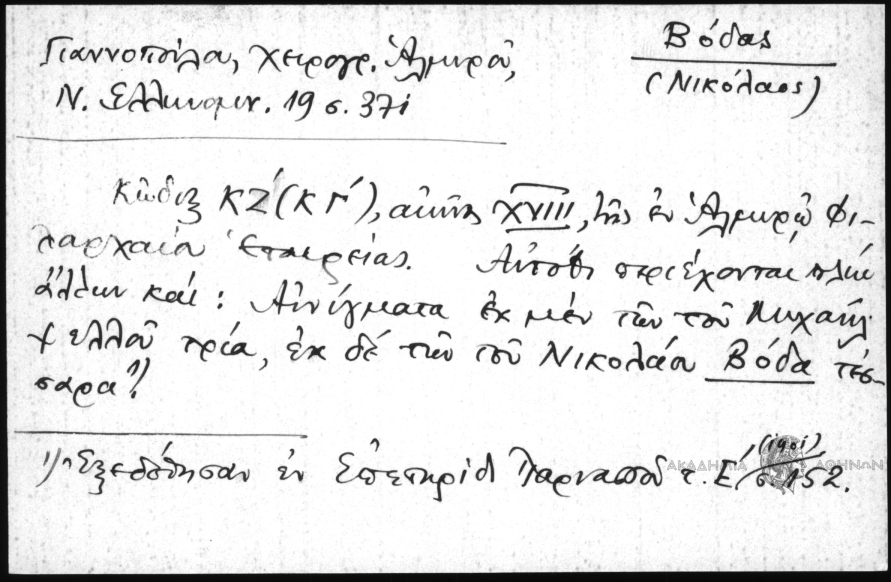 Βόδας
(Νικόλαος)
Γιαννοπούλου, χειρογρ. Ἁλμυροῦ,
Ν. Ἑλληνομν. 19 σ. 371
Κῶδιξ ΚΖ΄(ΚΓ΄), αἰῶνος XVIII, τῆς ἐν Ἁλμυρῷ Φι-
λαρχαίου Ἑταιρείας. Αὐτόθι περιέχονται πλὴν
ἄλλων καί: Αἰνίγματα ἐκ μὲν τῶν τοῦ Μιχαὴλ
Ψελλοῦ τρία, ἐκ δὲ τῶν τοῦ Νικολάου Βόδα τέσ-
σαρα¹⁾
1) Ἐξεδόθησαν ἐν Ἐπετηρίδι Παρνασσοῦ τ. Ε΄(1901) σ. 152.
ΑΚΑΔΗΜΙΑ ΑΘΗΝΩΝ